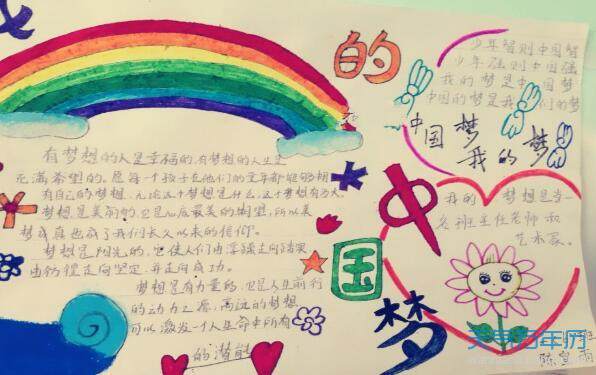 我
的
中
国
梦
少年智则中国智
少年强则中国强
我的梦是中国梦
中国的梦是我们的梦
中国梦
我的梦
有梦想的人是幸福的,有梦想的人生是
充满希望的。愿每一个孩子在他们的童年都能够拥
有自己的梦想,无论这个梦想是什么,这个梦想有多大
梦想是美丽的,它是心底最美的期望,所以美
梦成真也成了我们长久以来的信仰。
梦想是阳光的,它使人们由浮躁走向踏实
由彷徨走向坚定,并走向成功。
梦想是有力量的,它是人生前行
的动力之源;高远的梦想
可以激发一个人生命中所有
的潜能
我的梦想是当一
名班主任老师和
艺术家。
班
陈
雨